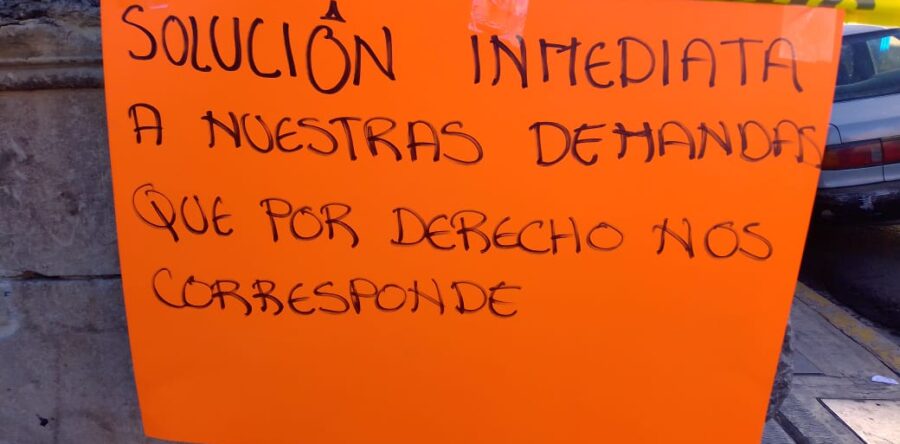 SOLUCIÓN INMEDIATA
A NUESTRAS DEMANDAS
QUE POR DERECHO NOS
CORRESPONDE